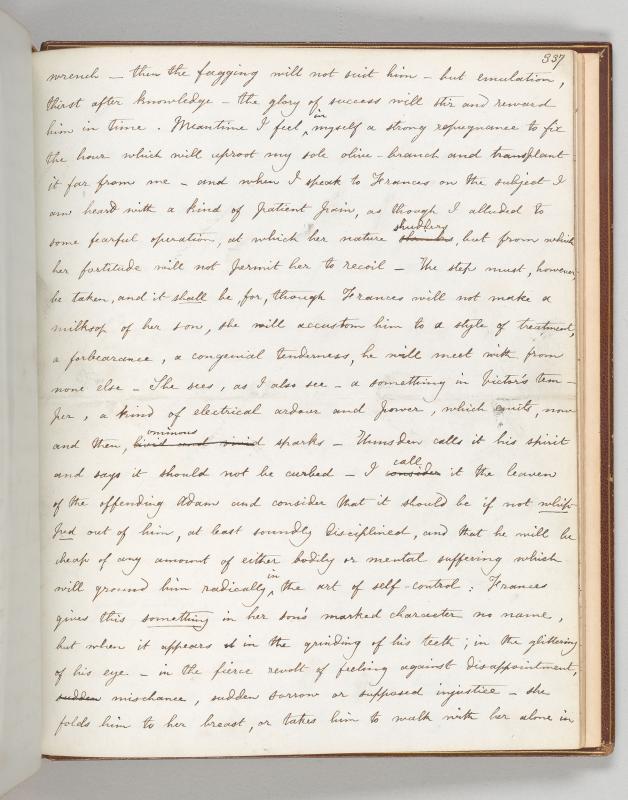 337
wrench – then the fagging will not suit him – but emulation,
thirst after knowledge – the glory of success will stir and reward
him in time. Meantime I feel in myself a strong repugnance to fix
the hour which will uproot my sole olive-branch and transplant
it far from me – and when I speak to Frances on the subject I
am heard with a kind of patient pain, as though I alluded to
some fearful operation, at which her nature shudders, but from which
her fortitude will not permit her to recoil – The step must, however,
be taken, and it shall be for, though Frances will not make a
milksop of her son, she will accustom him to a style of treatment,
a forbearance, a congenial tenderness, he will meet with from
none else – She sees, as I also see – a something in Victor's tem-
per, a kind of electrical ardour and power, which emits, now
and then, ominous sparks – Hunsden calls it his spirit
and says it should not be curbed – I call consider it the leaven
of the offending Adam and consider that it should be if not whip-
ped out of him, at least soundly disciplined, and that he will be
cheap of any amount of either bodily or mental suffering which
will ground him radically in the art of self-control: Frances
gives this something in her son's marked character no name,
but when it appears in the grinding of his teeth; in the glittering
of his eye – in the fierce revolt of feeling against disappointment,
sudden mischance, sudden sorrow or supposed injustice – she
folds him to her breast, or takes him to walk with her alone in